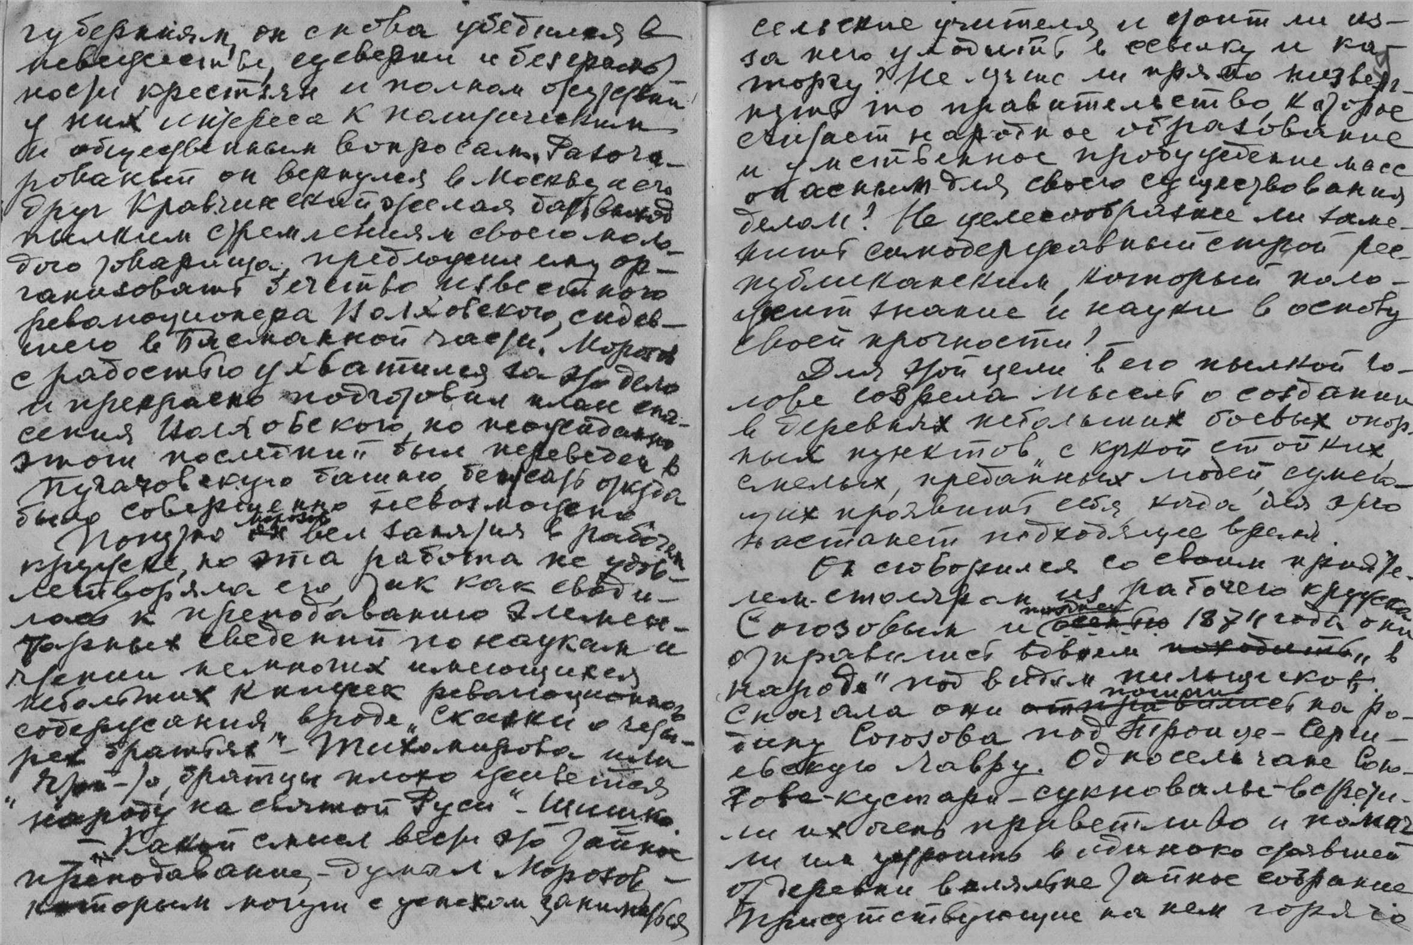 губерниям, он снова убедился в
невежестве, суеверии и безграмот-
ности крестьян и полном отсутствии
у них интереса к политическим
и общественным вопросам. Разоча-
рованный он вернулся в Москву и его
друг Кравчинский, желая дать выход
пылким стремлениям своего моло-
дого товарища, предложил ему ор-
ганизовать бегство известного
революционера Волховского, сидев-
шего в Басманной части. Морозов
с радостью ухватился за это дело
и прекрасно подготовил план спа-
сения Волховского, но неожиданно
этот последний был переведен в
Пугачовскую башню, бежать откуда
было совершенно невозможно
Попутно Морозов вел занятия в рабочем
кружке, но эта работа не удов-
летворяла его, так как своди-
лась к преподаванию элемен-
тарных сведений по наукам и
чтении немногих имеющихся
небольших книжек революционного
содержания вроде „Сказки о четы-
рех братьях" – Тихомирова или
„Чтой-то, братцы плохо живется
народу на святой Руси" – Шишко.
– „Какой смысл вести это тайное
преподавание, – думал Морозов –
которым могут с успехом заниматься
сельские учителя, и стоит ли из-
за него уходить в ссылку и ка-
торгу? Не лучше ли прямо низверг-
нуть то правительство, которое
считает народное образование
и умственное пробуждение масс
опасным для своего существования
делом? Не целесообразнее ли заме-
нить самодержавный строй рес-
публиканским, который поло-
жит знание и науки в основу
своей прочности?
Для этой цели в его пылкой го-
лове созрела мысль о создании
в деревнях небольших боевых опор-
ных пунктов, с кучкой стойких,
смелых, преданных людей, сумею-
щих проявить себя когда для этого
настанет подходящее время.
Он сговорился со своим прияте-
лем столяром из рабочего кружка
Союзовым и осенью 1874 года они
отправились вдвоем походить „в
народ" под видом пильщиков.
Сначала они пошли на ро-
дину Союзова под Троице-Серги-
евскую лавру. Односельчане Сою-
зова – кустари – сукновалы – встрети-
ли их очень приветливо и помог-
ли им устроить в одиноко стоявшей
от деревни валяльне тайное собрание
Присутствующие на нем горячо